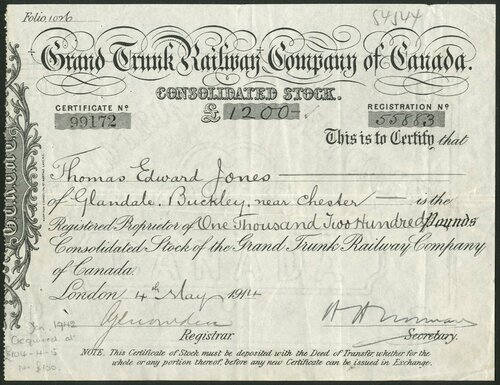 Folio 1026
54544
Grand Trunk Railway Company of Canada.
CONSOLIDATED STOCK.
CERTIFICATE Nº
99172
£1200-
REGISTRATION Nº
55883
This is to Certify that
Thomas Edward Jones
of Glandale, Buckley, near Chester — is the
Registered Proprietor of One Thousand Two Hundred Pounds
Consolidated Stock of the Grand Trunk Railway Company
of Canada.
London 4th May 1914
Registrar
Secretary.
Jan 1942
Acquired at
£104-4-5
£100.
NOTE. This Certificate of Stock must be deposited with the Deed of Transfer, whether for the
whole or any portion thereof, before any new Certificate can be issued in Exchange.